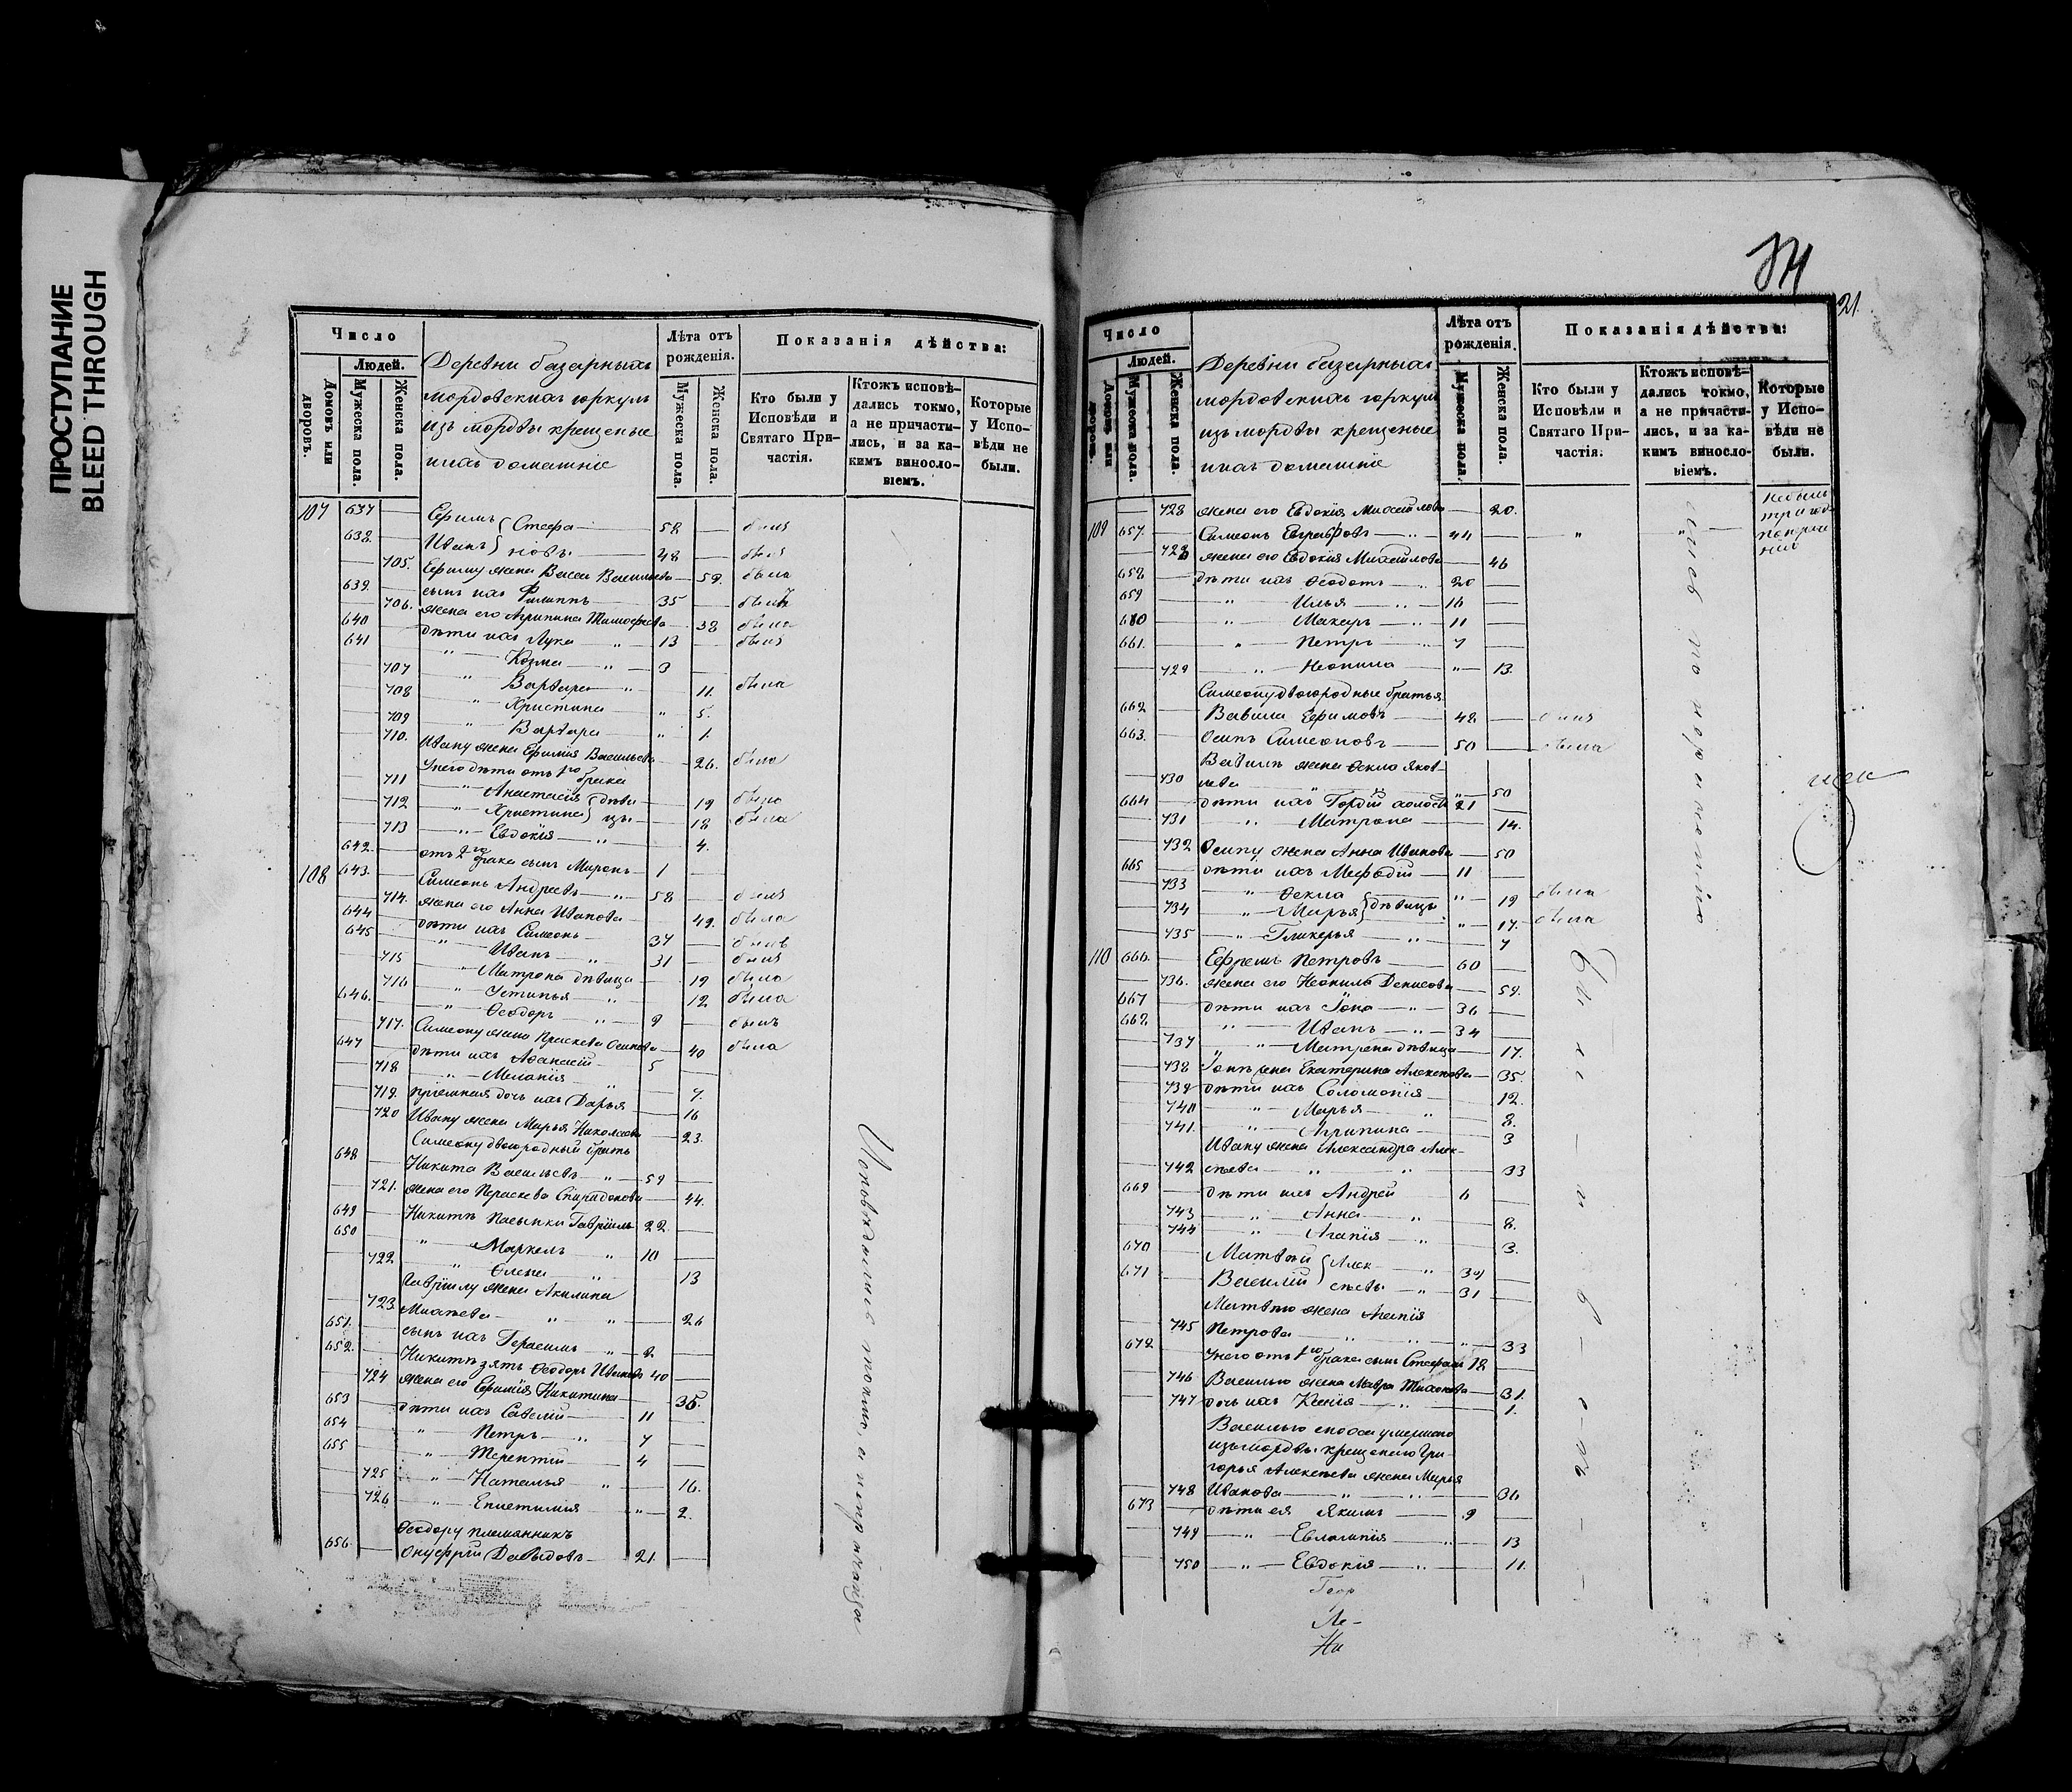 ПРОСТУПАНИЕ
BLEED THROUGH
Число
Людей.
Домовъ или дворовъ.
Мужеска пола.
Женска пола.
Деревни базарныхъ
мордовскихъ юркулъ
изъ мордвы крещеные
ихъ домашніе
Лѣта отъ рожденія.
Мужеска пола.
Женска пола.
Показанія дѣйства:
Кто были у Исповѣди и Святаго Причастія.
Ктожъ исповѣ-
дались токмо,
а не причасти-
лись, и за ка-
кимъ винosло-
віемъ.
Которые
у Испо-
вѣди не
были.
107 637 Ефимъ Стефа- 58 былъ
638 Иванъ новы 48 былъ
705. Ефиму жена Васса Васильева 59. была
639. сынъ ихъ Филиппъ 35 былъ
706. жена его Агрипина Тимофеева 38 была
640 дѣти ихъ Лука 13 былъ
641 " Козма " 3
707 " Варвара " 11. была
708 " Христина " 5.
709 " Варвара " 1.
710. Ивану жена Ефимія Васильева 26. была
У него дѣти отъ 1го брака
711 " Анастасія дѣви- 19 была
712 " Христина цы 18 была
713 " Евдокія " 4.
642. отъ 2го брака сынъ Миронъ 1
108 643. Симеонъ Андреевъ " 58 былъ
714. жена его Анна Иванова 49. была
644 дѣти ихъ Симеонъ 37 былъ
645 " Иванъ " 31 былъ
715 " Матрона дѣвица 19 была
716 " Устинья " 12 была
646. " Ѳеодоръ " 9 былъ
717. Симеону жена Праскева Осипова 40 была
647 дѣти ихъ Аѳанасій 5
718 " Меланія " 7.
719. Пріемная дочь ихъ Дарья 16
720 Ивану жена Марья Николаева 23.
Симеону двоюродный братъ
648 Никита Васильевъ " 59
721. жена его Параскева Спиридонова 44.
649 Никитѣ пасынки Гавріилъ 22.
650 " Маркелъ " 10
722 " Елена " 13
Гавріилу жена Акилина
723 " " 26
651. сынъ ихъ Герасимъ " 2
652. Никитѣ зять Ѳеодоръ Ивановъ 40
724 жена его Ефимія Никитина 35.
653 дѣти ихъ Савелій 11
654 " Петръ " 7
655 " Терентій 4
725 " Наталья " 16.
726 " Епистимія " 2.
Ѳеодору племянникъ
656. Онуфрій Давыдовъ 21.
21.
Число
Людей.
Мужеска пола.
Женска пола.
Деревни базарныхъ
мордовскихъ юркулъ
изъ мордвы крещеные
ихъ домашніе
Лѣта отъ рожденія.
Мужеска пола.
Женска пола.
Показанія дѣйства:
Кто были у Исповѣди и Святаго Причастія.
Ктожъ исповѣ-
дались токмо,
а не причасти-
лись, и за ка-
кимъ винosло-
віемъ.
Которые
у Испо-
вѣди не
были.
728 жена его Евдокія Михайлова 20.
109 657. Симеонъ Евграфовъ 44 "
728 жена его Евдокія Михайлова 46
658 дѣти ихъ Ѳеодотъ 20
659 " Илья " 16
660 " Макаръ " 11
661. " Петръ " 7
729 " Неонила " 13.
Симеону двоюродные братья
662 Вавила Ефимовъ 42
663. Осипъ Симеоновъ 50
Вавилѣ жена Ѳекла Яков-
730 лева " 50
664 дѣти ихъ Гордій холостъ 21
731 " Матрона 14.
732 Осипу жена Анна Иванова 50
665 дѣти ихъ Меѳодій 11
733 " Ѳекла дѣвицы " 19 была
734 " Марья " 17. была
735 " Гликерья " 7
110 666. Ефремъ Петровъ 60
736. жена его Неонила Денисова 59.
667 дѣти ихъ Іона " 36
668. " Иванъ " 34
737 " Матрена дѣвица 17.
738 Іонѣ жена Екатерина Алексѣева 35.
739 дѣти ихъ Соломонія 12.
740 " Марья " 8.
741. " Агрипина 3
Ивану жена Александра Алек-
742 сѣева " " 33
669 дѣти ихъ Андрей 6
743 " Анна " 8.
744 " Агапія " 3.
670 Матвѣй Алек- "
671 Василій сѣевы " 31
Матвѣю жена Агапія
745 Петрова " " 33
672. У него отъ 1го брака сынъ Стефанъ 18
746 Василью жена Мавра Тихонова 31.
747 дочь ихъ Ксенія " 1.
Василью сноха умершаго
изъ мордвы крещенаго Гри-
горья Алексѣева жена Марья
748 Иванова " " 36
673 дѣти ея Якимъ 9
749 " Евлампія " 13
750 " Евдокія " 11.